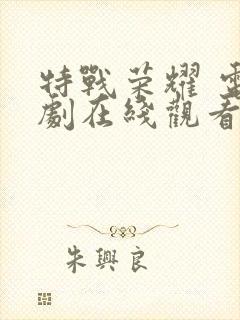 特戰荣耀 電
劇在綫觀看
朱興良